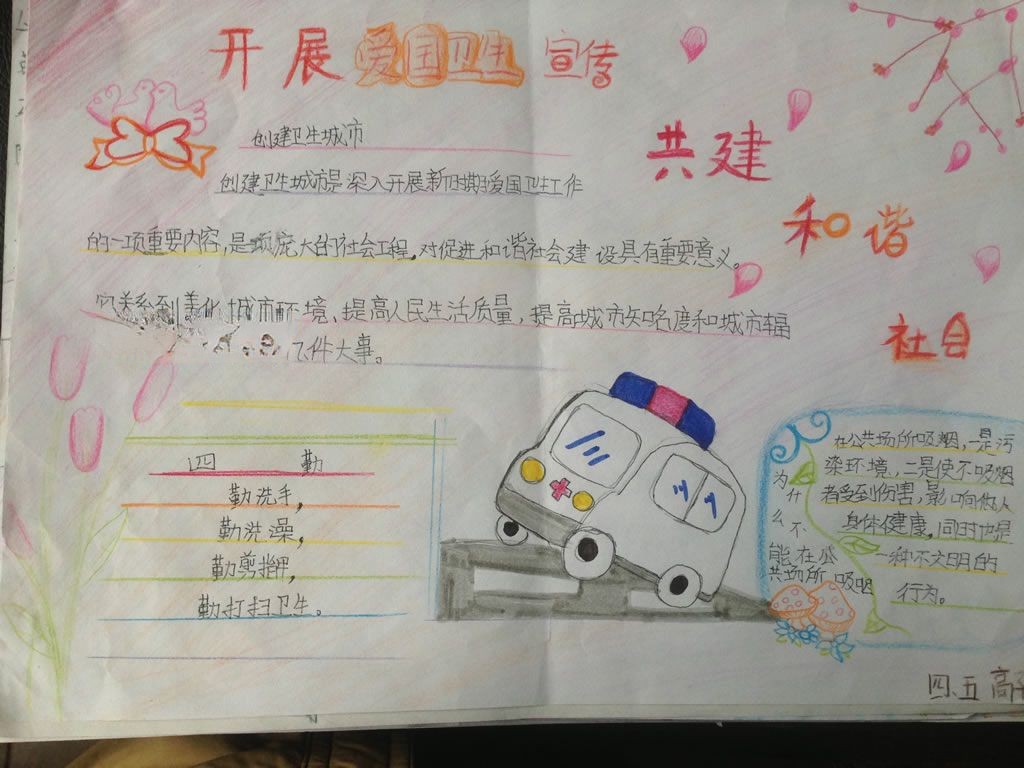 开展爱国卫生宣传
共建
和谐
社会
创建卫生城市
创建卫生城市是深入开展新时期爱国卫生工作
的一项重要内容,是项庞大的社会工程,对促进和谐社会建设具有重要意义。
它关系到美化城市环境、提高人民生活质量,提高城市知名度和城市辐
件大事。
四 勤
勤洗手,
勤洗澡,
勤剪指甲,
勤打扫卫生。
为什么不能在公共场所吸烟
在公共场所吸烟,一是污
染环境,二是使不吸烟
者受到伤害,影响他人
身体健康,同时也是
一种不文明的
行为。
四、五 高